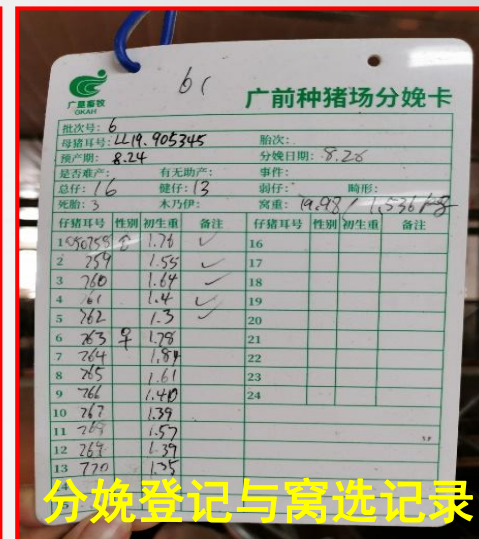 6(
广垦畜牧
GKAH
广前种猪场分娩卡
批次号: 6
母猪耳号: LL19.905345 胎次:
预产期: 8.24 分娩日期: 8.26
是否难产: 有无助产: 事件:
总仔: 16 健仔: 13 弱仔: 畸形:
死胎: 3 木乃伊: 窝重: 19.98 / 1.536
仔猪耳号 性别 初生重 备注 仔猪耳号 性别 初生重 备注
1 1.76 ✓ 16
2 759 1.55 ✓ 17
3 760 1.64 ✓ 18
4 761 1.4 ✓ 19
5 762 1.3 ✓ 20
6 763 ♀ 1.78 21
7 764 1.84 22
8 765 1.61 23
9 766 1.40 24
10 767 1.39
11 768 1.57
12 769 1.39
13 770 1.35
分娩登记与窝选记录